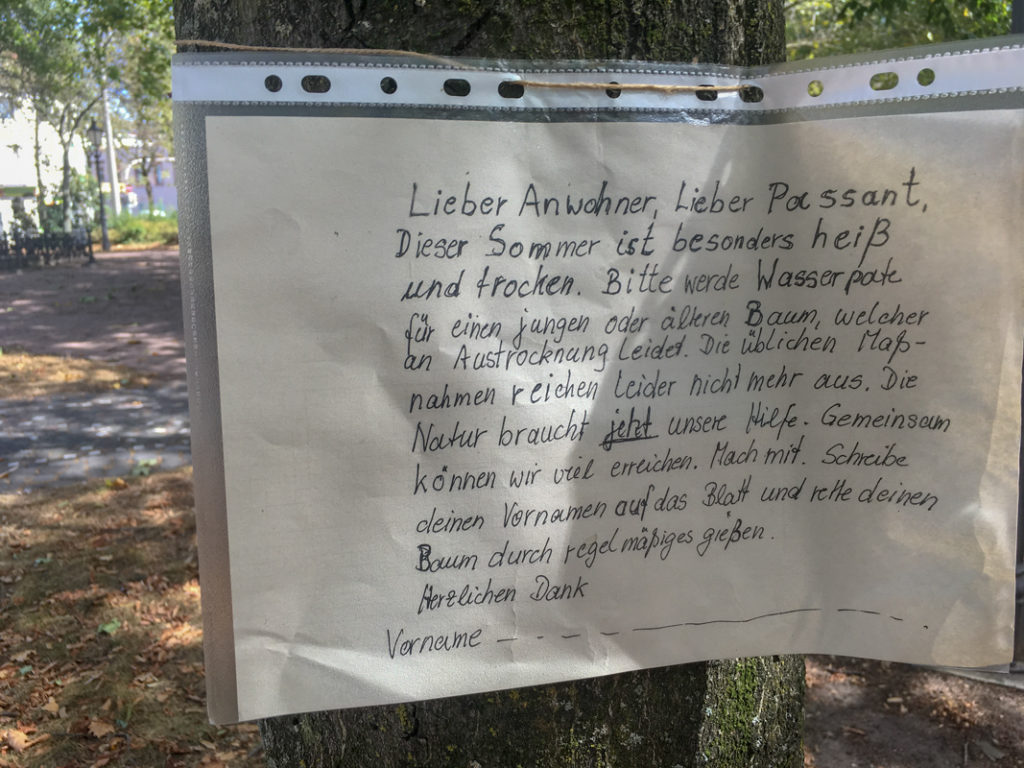 Lieber Anwohner, Lieber Passant,
Dieser Sommer ist besonders heiß
und trocken. Bitte werde Wasserpate
für einen jungen oder älteren Baum, welcher
an Austrocknung leidet. Die üblichen Maß-
nahmen reichen leider nicht mehr aus. Die
Natur braucht jetzt unsere Hilfe. Gemeinsam
können wir viel erreichen. Mach mit. Schreibe
deinen Vornamen auf das Blatt und rette deinen
Baum durch regelmäßiges gießen.
Herzlichen Dank
Vorname